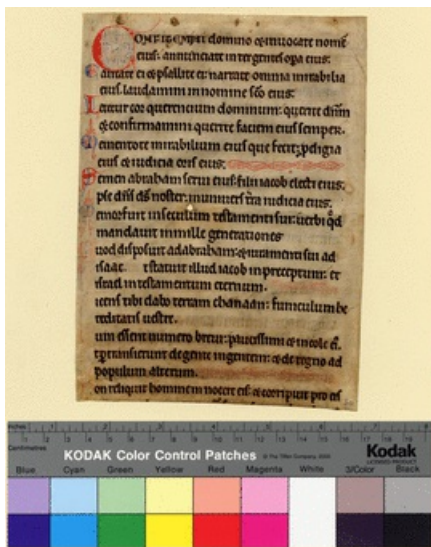 Confitemini domino & inuocate nomē
eius: annunciate inter gentes opa eius.
Cantate ei & psallite ei: narrate omnia mirabilia
eius. laudamini in nomine sco eius:
Letetur cor querencium dominum: querite dnm
& confirmamini querite faciem eius semper.
Mementote mirabilium eius que fecit: pdigia
eius & iudicia oris eius.
Semen abraham serui eius: filii iacob electi eius.
pse dns ds noster: in uniuersa tra iudicia eius.
emor fuit in seculum testamenti sui: uerbi qd
mandauit in mille generationes
uod disposuit ad abraham: & iuramenti sui ad
isaac. tstatuit illud iacob in preceptum: et
israel in testamentum eternum.
icens tibi dabo terram chanaan: funiculum he
reditatis uestre.
um essent numero breui: paucissimi & incole ei.
tptransierunt de gente in gentem: & de regno ad
populum alterum.
on reliquit hominem nocere eis: & corripuit pro eis
inches
Centimetres
KODAK Color Control Patches © The Tiffen Company, 2000
Kodak
LICENSED PRODUCT
Blue Cyan Green Yellow Red Magenta White 3/Color Black